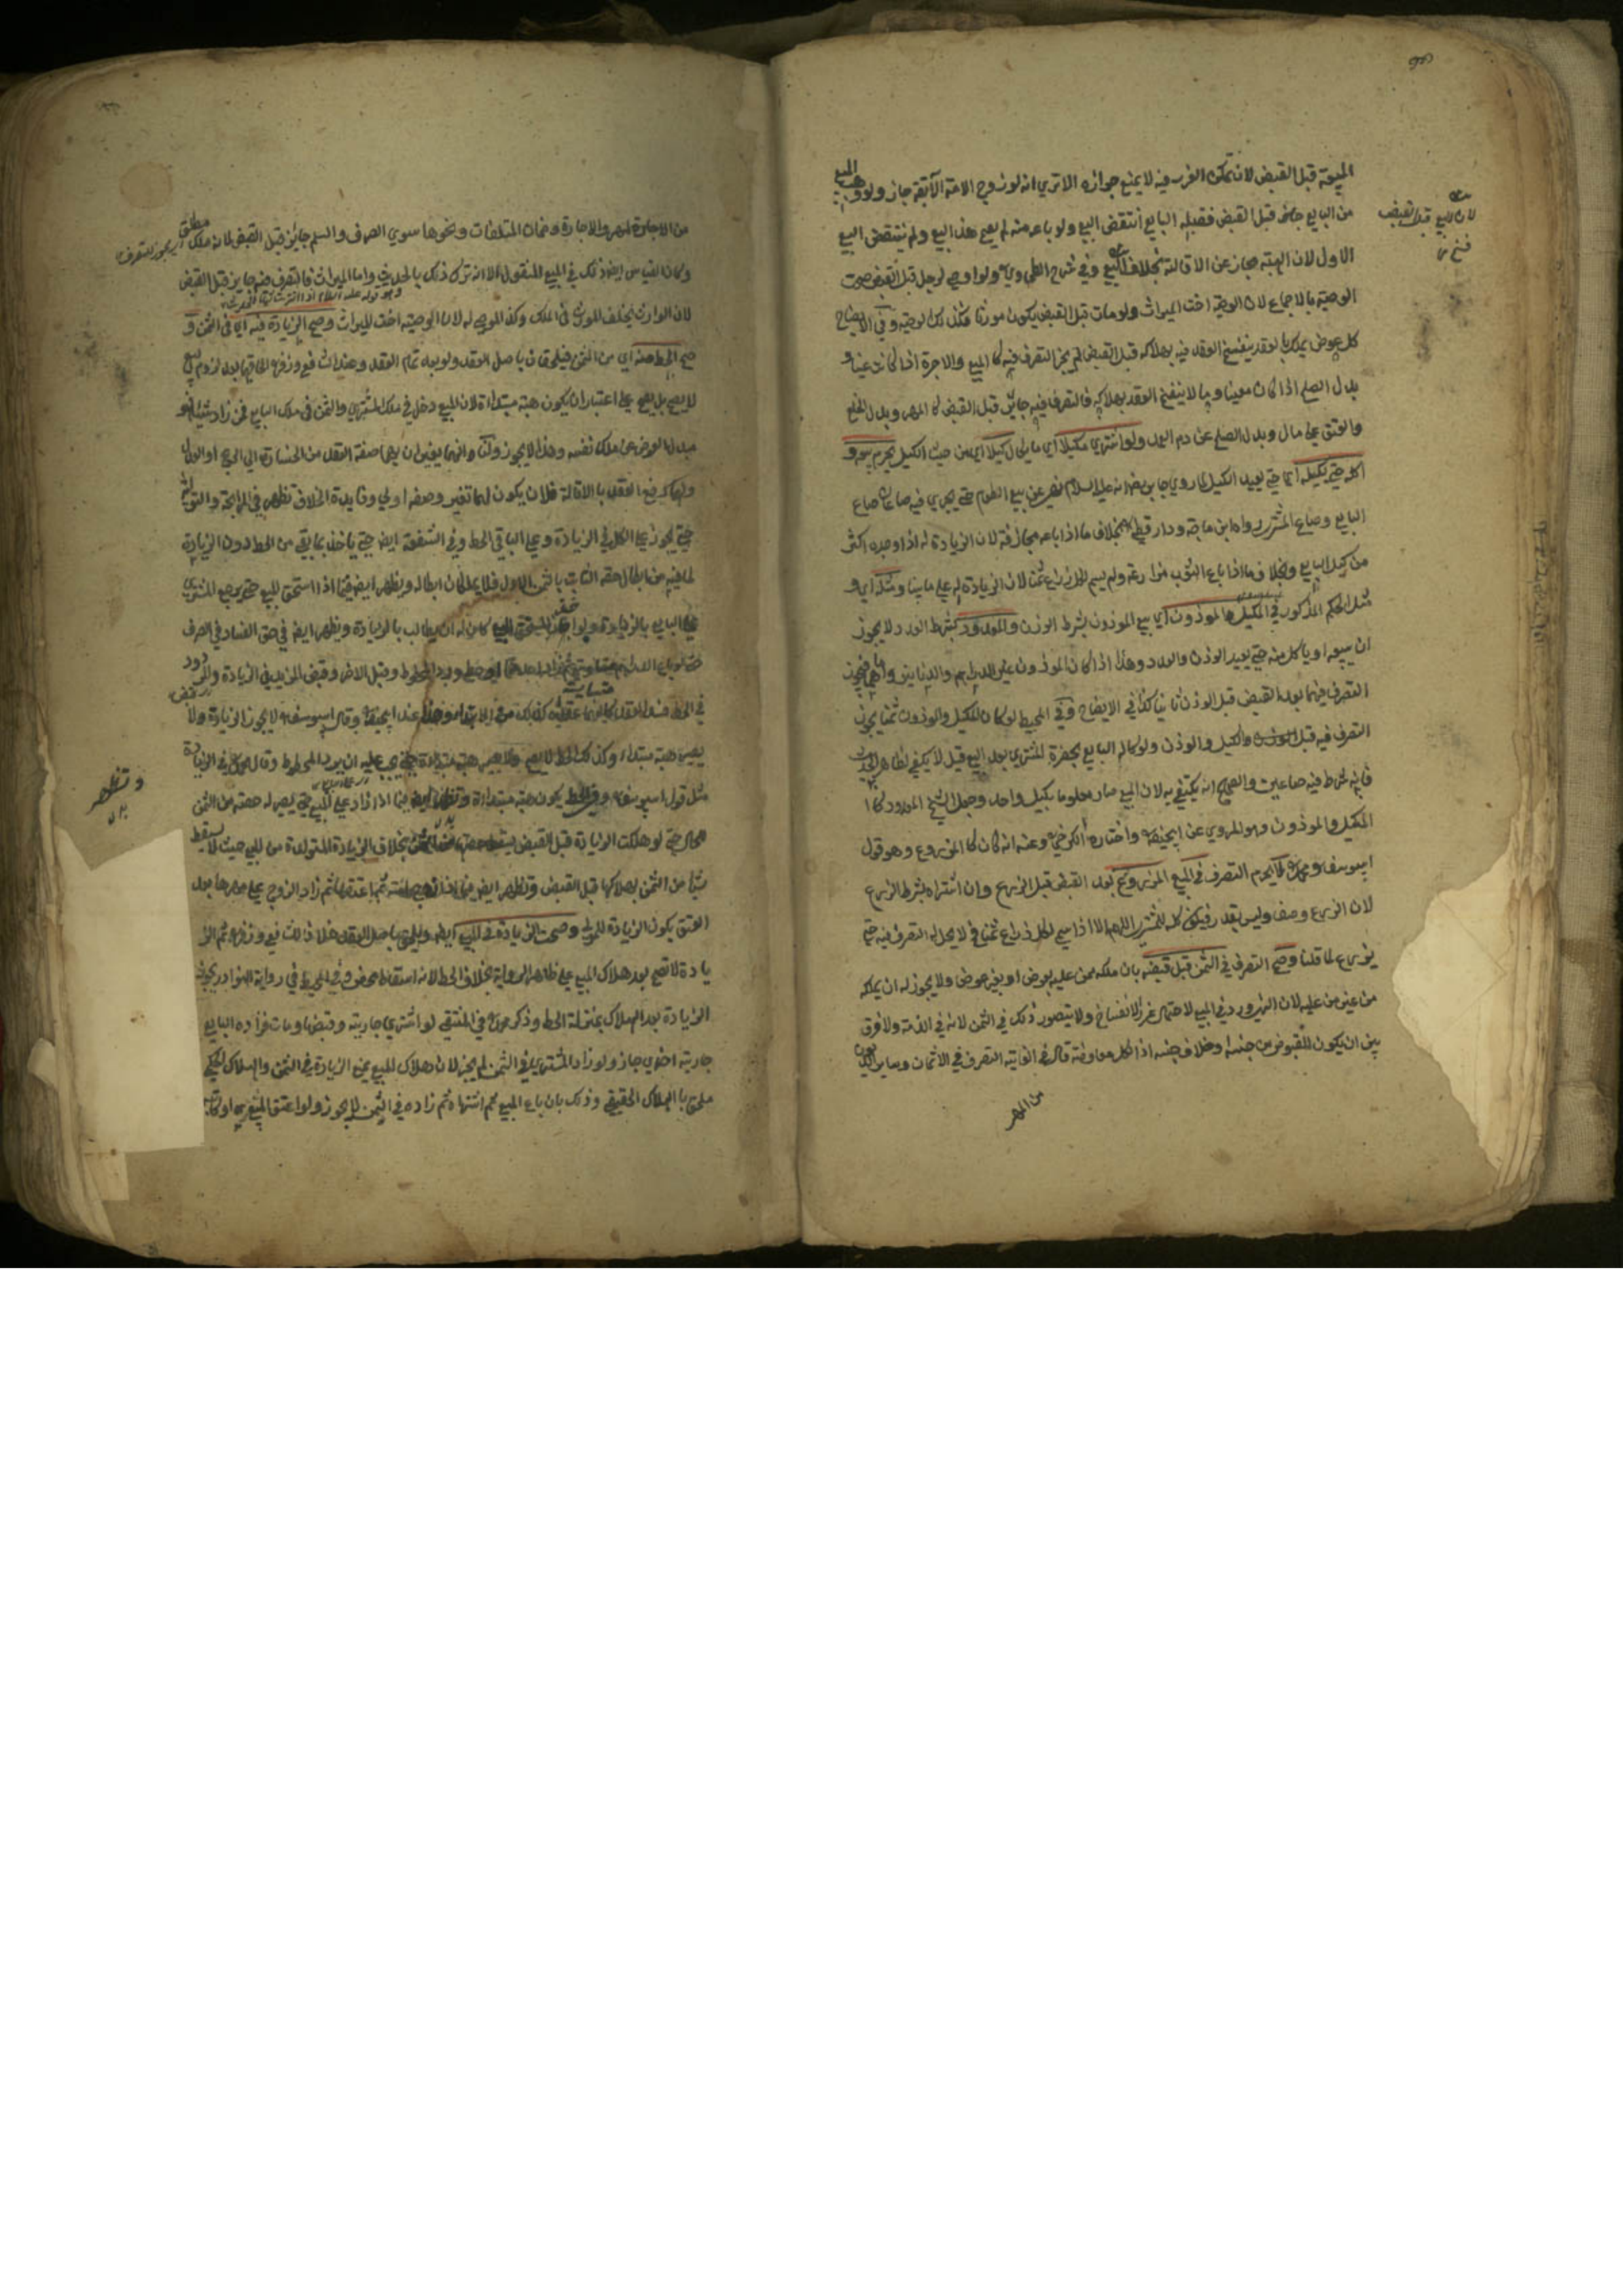 المبيعة قبل القبض لان تمكن الغرر فيه لا يمنع جوازه الا تري انه لو تزوج الامة الآبقة جاز ولو وهب المبيع
من البايع جاز قبل القبض فقبله البايع انتقض البيع ولو باعه منه لم يصح هذا البيع ولم ينتقض البيع
الاول لان الهبة مجاز عن الاقالة بخلاف البيع وفي شرح الطحاوي ولو اوصي لرجل قبل القبض صحت
الوصية بالاجماع لان الوصية اخت الميراث ولو مات قبل القبض يكون موروثا فكذلك الوصية وفي الايضاح
كل عوض يملك بالعقد ينفسخ العقد فيه بهلاكه قبل القبض لم يجز التصرف فيه كالمبيع والاجرة اذا كانت عينا و
بدل الصلح اذا كان معينا وما لا ينفسخ العقد بهلاكه فالتصرف فيه جايز قبل القبض كالمهر وبدل الخلع
والعتق علي مال وبدل الصلح عن دم العمد ولو اشتري مكيلا اي ما يكال كيلا اي من حيث الكيل يحرم بيعه و
اكله حتي يكيله اي حتي يعيد الكيل لما روي جابر انه عليه السلام نهي عن بيع الطعام حتي يجري فيه صاعان صاع
البايع وصاع المشتري رواه ابن ماجة ودار قطني بخلاف ما اذا باعه مجازفة لان الزيادة له اذا وجده اكثر
من كيل البايع وبخلاف ما اذا باع الثوب مذارعة ولم يسم لكل ذراع ثمنا لان الزيادة له علي ما بينا ومثله اي و
مثل الحكم المذكور في المكيل الموزون اي بيع الموزون بشرط الوزن والمعدود بشرط العدد لا يجوز
ان يبيعه او ياكل منه حتي يعيد الوزن والعدد وهذا اذا كان الموزون غير الدراهم والدنانير واما هما فيجوز
التصرف فيهما بعد القبض قبل الوزن ثانيا كذا في الايضاح وفي المحيط لو كان المكيل والموزون ثمنا يجوز
التصرف فيه قبل الكيل والوزن ولو كاله البايع بحضرة المشتري بعد البيع قيل لا يكتفي لظاهر الحديث
فانه شرط فيه صاعين والصحيح انه يكتفي به لان المبيع صار معلوما بكيل واحد وجعل الشيخ المعدود كا
المكيل والموزون وهو المروي عن ابيحنيفة واختاره الكرخي وعنه انه كان كالمزروع وهو قول
ابيوسف ومحمد لا يحرم التصرف في المبيع المزروع بعد القبض قبل الزرع وان اشتراه بشرط الزرع
لان الزرع وصف وليس بقدر فيكون كله للمشتري اللهم الا اذا سمي لكل ذراع ثمنا فلا يحل له التصرف فيه حتي
يزرع لما قلنا وصح التصرف في الثمن قبل قبضه بان ملكه ممن عليه بعوض او بغير عوض ولا يجوز له ان يملكه
من غير من عليه لان الغرر ورد في المبيع لاحتمال غرر الانفساخ ولا يتصور ذلك في الثمن لانه في الذمة ولا فرق
بين ان يكون المقبوض من جنسه وخلاف جنسه اذا لكل معاوضة قال في الغاية التصرف في الاثمان وساير الديون
من المهر
لان البيع قبل القبض
من الاجارة المهر والاجارة وضمان المتلفات ونحوها سوي الصرف والسلم جايز قبل القبض لانه ملك مطلق يجوز التصرف
وكان القياس ايضا ذلك في المبيع المنقول الا انه ترك ذلك بالحديث واما الميراث فالتصرف فيه جايز قبل القبض
لان الوارث يخلف المورث في الملك وكذا الموصي له لان الوصية اخت الميراث وصح الزيادة فيه اي في الثمن و
صح الحط منه اي من الثمن فيلحقان باصل العقد ولو بعد تمام العقد وعند الشافعي وزفر
لا يصح بل يصح علي اعتبار ان يكون هبة مبتداة لان المبيع دخل في ملك المشتري والثمن في ملك البايع فمن زاد شيئا فهو
مبدل العوض عن ملك نفسه وهذا لا يجوز ولنا وانهما يغيران بهما صفة العقد من الخسارة الي الربح او العدل
ولهما رفع العقد بالاقالة فلان يكون لهما تغير وصفه اولي وفايدة الخلاف تظهر في المرابحة والتولية
حتي يجوز علي الكل في الزيادة وعلي الباقي في الحط وفي الشفعة ايضا حتي ياخذ بما بقي من الحط دون الزيادة
لما فيه من ابطال حقه الثابت بالثمن الاول فلا يملكان ابطاله ويظهر ايضا فيما اذا استحق المبيع حتي يرجع المشتري
علي البايع بالزيادة ولو اجاز المستحق البيع كان له ان يطالب بالزيادة ويظهر ايضا في حق الفساد في الصرف
في الحط فسد العقد كانهما عقداه كذلك من الابتداء وهذا عند ابيحنيفة وقال ابيوسف لا يجوز الزيادة ولا
يصير هبة مبتداء وكذلك الحط لا يصح ولا يصير هبة مبتداة حتي يجب عليه ان يرد المحطوط وقال محمد في الزيادة
مثل قول ابيوسف وفي الحط يكون هبة مبتداة وتظهر ايضا فيما اذا زاد علي المبيع حتي يصير له حصته من الثمن
حتي لو هلكت الزيادة قبل القبض يسقط حصتها من الثمن بخلاف الزيادة المتولدة من المبيع حيث لا يسقط
شيأ من الثمن بهلاكها قبل القبض وتظهر ايضا فيما اذا زوج امته ثم اعتقها ثم زاد الزوج علي مهرها بعد
العتق يكون الزيادة للمولي وصحت الزيادة في المبيع ايضا ويلحق باصل العقد خلافا للشافعي وزفر ثم الز
يادة لا تصح بعد هلاك المبيع علي ظاهر الرواية بخلاف الحط لانه اسقاط محض وفي المحيط في رواية النوادر يجوز
الزيادة بعد الهلاك بمنزلة الحط وذكر محمد في المنتقي لو اشتري جارية وقبضها وماتت فزاده البايع
جارية اخري جاز ولو زاد المشتري في الثمن لم يجز لان هلاك المبيع يمنع الزيادة في الثمن والهلاك الحكمي
ملحق بالهلاك الحقيقي وذلك بان باع المبيع ثم اشتراه ثم زاده في الثمن لا يجوز ولو اعتق المشتري او كاتب
وتظهر